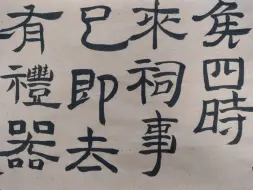 矦四時
來祠事
已即去
有禮器